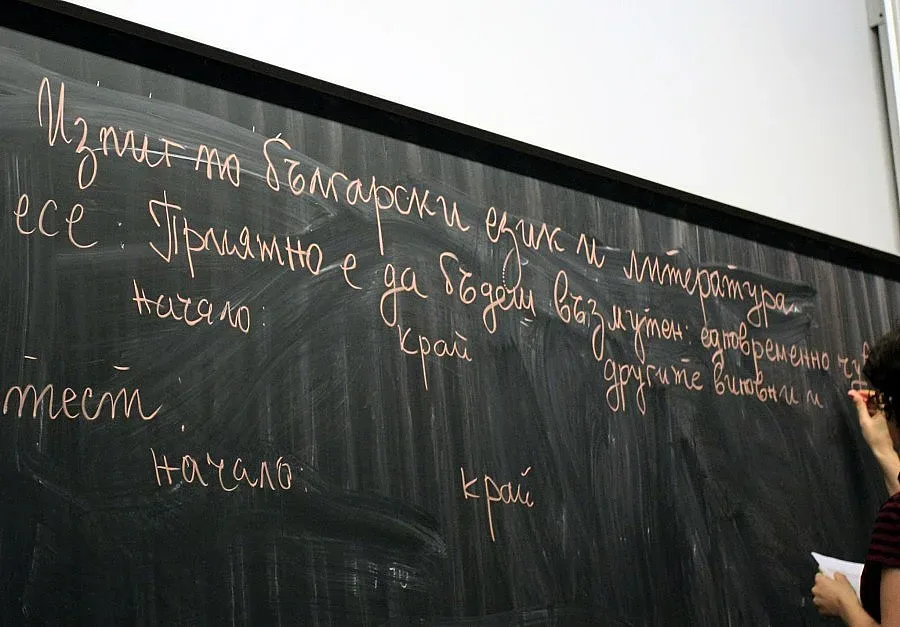 Изпит по български език и литература
есе: Приятно е да бъдеш възмутен: едновременно
другите виновни и
начало:
край
тест
начало:
край